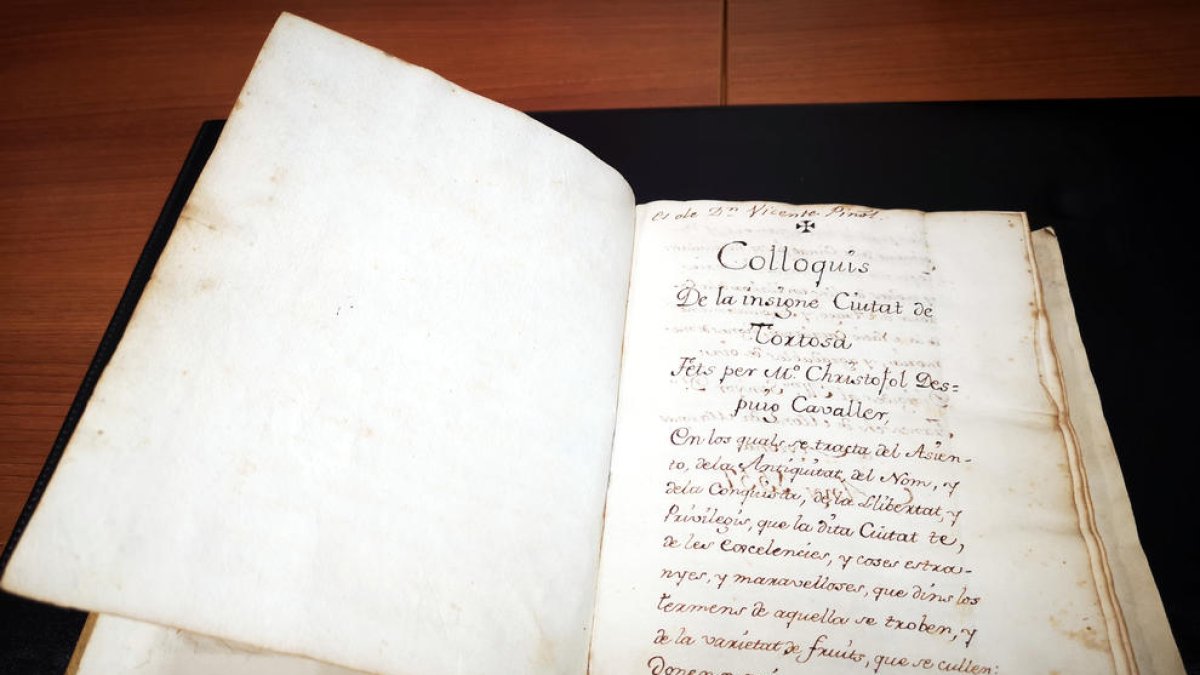 es de Dⁿ Vicente Pinol.
Colloquis
De la insigne Ciutat de
Tortosa
Fets per Mº Christofol Des=
puig Cavaller,
En los quals se tracta del Asien-
to, dela Antiquitat, del Nom, y
dela Conquista, de la Llibertat, y
Privilegis, que la dita Ciutat te,
de les Excelencies, y coses estra-
nyes, y maravelloses, que dins los
termens de aquella se troben, y
de la varietat de fruits, que se cullen: